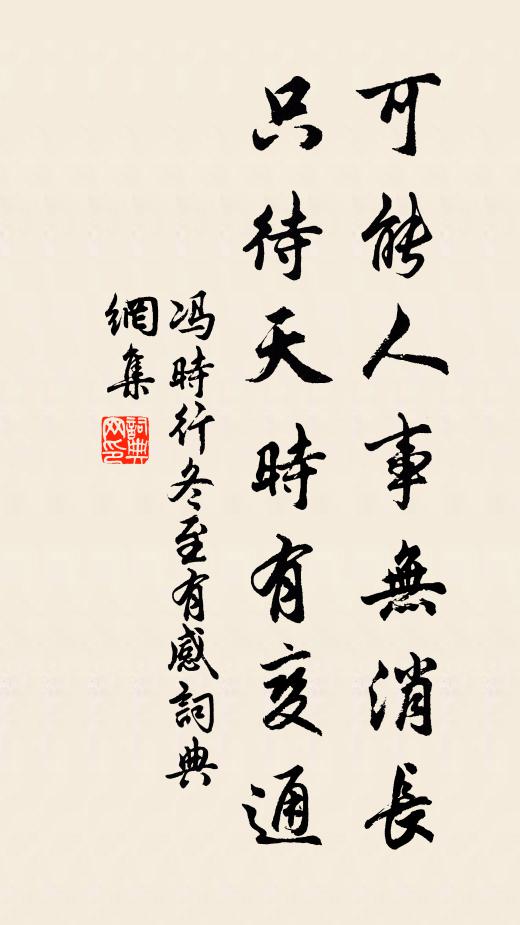 可能人事無消長
只待天時有変通
冯時行冬至有感詞典
網集
詞典
网印